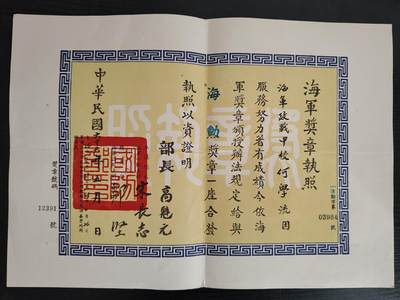 海軍獎章執照
03964 號
海軍政戰中校何學流因
服務努力著有成績今依海
軍獎章頒授辦法規定給與
海勛獎章一座合發
執照以資證明
部長 高魁元
宋長志
鄒堅
中華民國
年四月 日
獎章號碼
12391 號